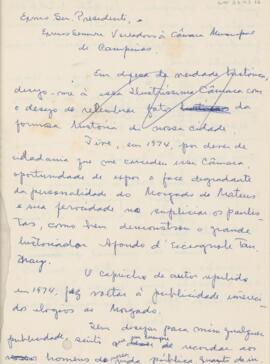 Exmo Snr. Presidente,
Exmos Senhores Vereadores à Câmara Municipal
de Campinas
Em defesa da verdade histórica,
dirijo-me à essa Ilustríssima Câmara com
o desejo de relembrar fatos da
formosa História de nossa cidade.
Tive, em 1974, por dever de
cidadania que me concedeu essa Câmara,
oportunidade de expor a face degradante
da personalidade do Morgado de Mateus
e sua ferocidade no supliciar os paulis-
tas, como bem demonstrou o grande
historiador Afonso d'Escragnole Tau-
nay.
O capricho de autor repelido
em 1974, faz voltar à publicidade
elogios ao Morgado.
Sem desejar para mim qualquer
publicidade, sinto de recordar aos
homens da vida pública